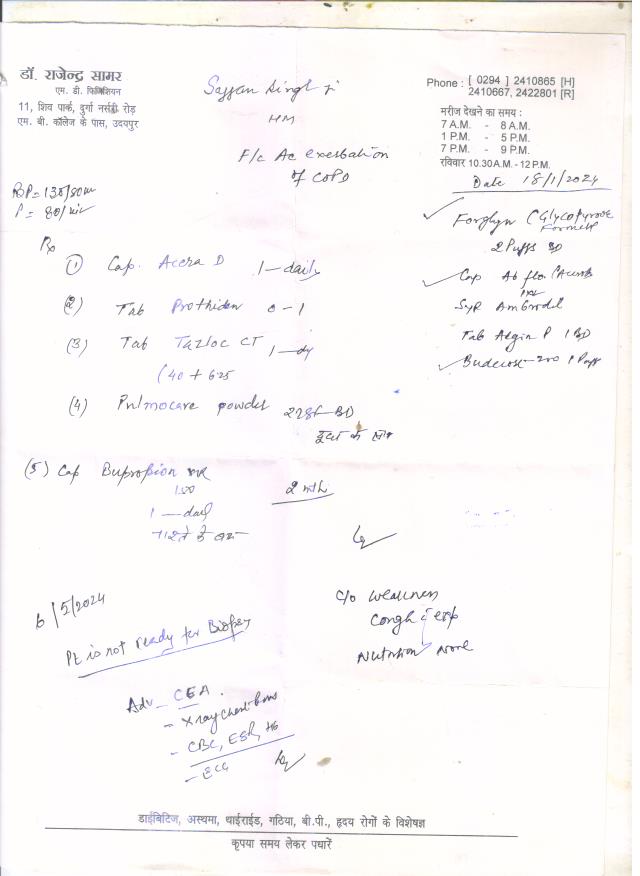 डॉ. राजेन्द्र सामर
एम. डी. फिजिशियन
11, शिव पार्क, दुर्गा नर्सरी रोड़
एम. बी. कॉलेज के पास, उदयपुर
Sajjan Singh ji
HM
F/c Ac exerbation
of COPD
Phone : [ 0294 ] 2410865 [H]
2410667, 2422801 [R]
मरीज देखने का समय :
7 A.M. - 8 A.M.
1 P.M. - 5 P.M.
7 P.M. - 9 P.M.
रविवार 10.30 A.M. - 12 P.M.
Date 18/1/2024
BP = 130/80
P = 80/min
Rx
(1) Cap. Accra D 1 — daily
(2) Tab Prothiden 0 - 1
(3) Tab Tazloc CT 1 — dy
(40 + 6.25
(4) Pulmocare powder BD
दूध के साथ
(5) Cap Bupropion
150
1 — daily
नाश्ते के बाद
2 mth
Foroglyn (Glycopyrro
2 Puffs BD
Cap Ab flo
Syp Ambrodil
Tab Algin P 1 BD
Budecost - 200 1 Puff
6/5/2024
Pt is not ready for Biopsy
Adv — CEA.
- Xray chest
- CBC, ESR, Hb
- ECG
C/o Weakness
Cough
Nutrition
डाईबिटिज, अस्थमा, थाईराईड, गठिया, बी.पी., हृदय रोगों के विशेषज्ञ
कृपया समय लेकर पधारें